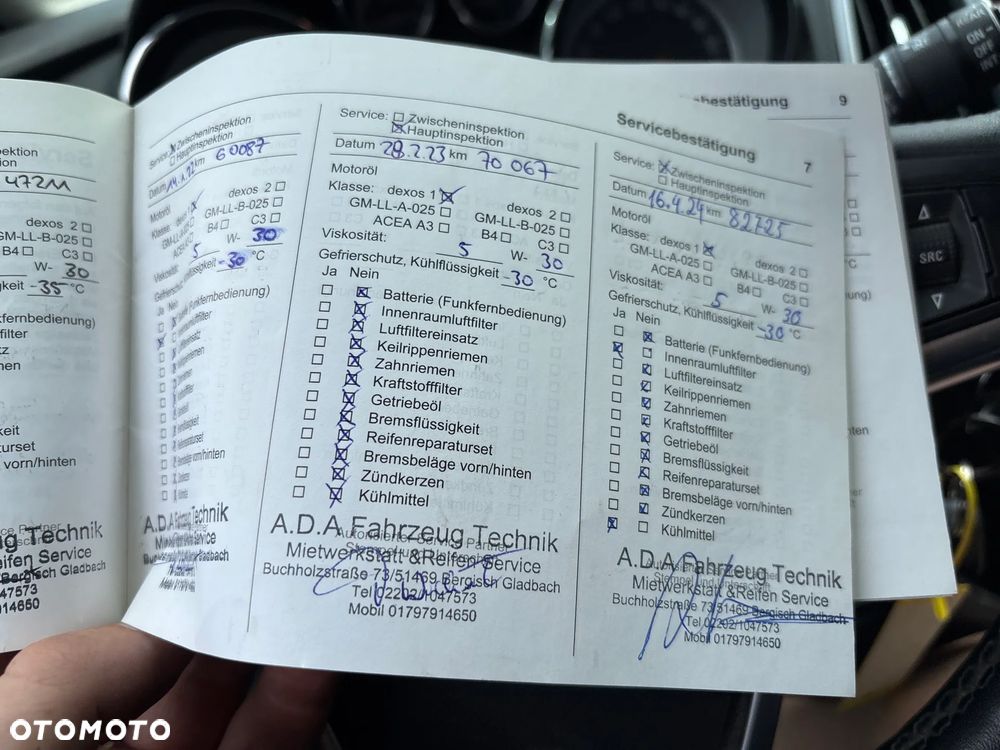 ektion
ektion
472M
dexos 2
GM-LL-B-025
B4 C3
W- 30
gkeit -35 °C
kfernbedienung)
filter
tz
men
keit
turset
e vorn/hinten
ug Technik
eifen Service
Bergisch Gladbach
047573
914650
Service: Zwischeninspektion
Hauptinspektion
Datum km 60087
Motoröl
Klasse: dexos
dexos 2
GM-LL-B-025
B4 C3
Viskosität: 5 W- 30
-30 °C
Ja
A.D.A Fahrzeug Technik
Buchholzstraße
Gladbach
Service: Zwischeninspektion
Hauptinspektion
Datum 28.2.23 km 70 067
Motoröl
Klasse: dexos 1 dexos 2
GM-LL-A-025 GM-LL-B-025
ACEA A3 B4 C3
Viskosität: 5 W- 30
Gefrierschutz, Kühlflüssigkeit -30 °C
Ja Nein
Batterie (Funkfernbedienung)
Innenraumluftfilter
Luftfiltereinsatz
Keilrippenriemen
Zahnriemen
Kraftstofffilter
Getriebeöl
Bremsflüssigkeit
Reifenreparaturset
Bremsbeläge vorn/hinten
Zündkerzen
Kühlmittel
A.D.A Fahrzeug Technik
Autorisierter Service Partner
Mietwerkstatt & Reifen Service
Buchholzstraße 73/51469 Bergisch Gladbach
Tel 02202/1047573
Mobil 01797914650
Servicebestätigung 7
Service: Zwischeninspektion
Hauptinspektion
Datum 16.4.24 km 82725
Motoröl
Klasse: dexos 1 dexos 2
GM-LL-A-025 GM-LL-B-025
ACEA A3 B4 C3
Viskosität: 5 W- 30
Gefrierschutz, Kühlflüssigkeit -30 °C
Ja Nein
Batterie (Funkfernbedienung)
Innenraumluftfilter
Luftfiltereinsatz
Keilrippenriemen
Zahnriemen
Kraftstofffilter
Getriebeöl
Bremsflüssigkeit
Reifenreparaturset
Bremsbeläge vorn/hinten
Zündkerzen
Kühlmittel
A.D.A Fahrzeug Technik
Mietwerkstatt & Reifen Service
Buchholzstraße 73/51469 Bergisch Gladbach
Tel 02202/1047573
Mobil 01797914650
bestätigung 9
SRC
ON
OFF
INT
OTOMOTO